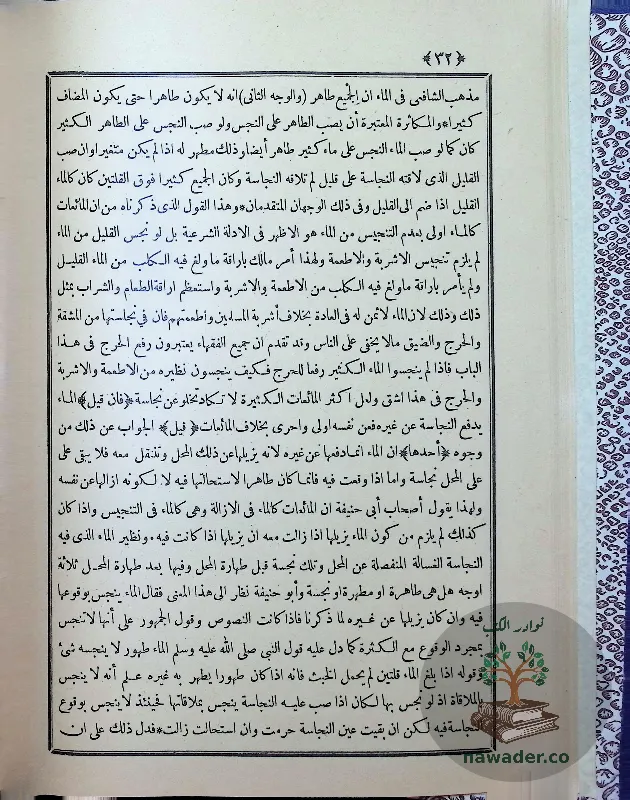 ﴿٣٢﴾
مذهب الشافعى فى الماء ان الجميع طاهر (والوجه الثانى) انه لا يكون طاهرا حتى يكون المضاف
كثيرا* والمكاثرة المعتبرة أن يصب الطاهر على النجس ولو صب النجس على الطاهر الكثير
كان كما لو صب الماء النجس على ماء كثير طاهر أيضا وذلك مطهر له اذا لم يكن متغيرا وان صب
القليل الذى لاقته النجاسة على قليل لم تلاقه النجاسة وكان الجميع كثيرا فوق القلتين كان كالماء
القليل اذا ضم الى القليل وفى ذلك الوجهان المتقدمان* وهذا القول الذى ذكرناه من ان المائعات
كالماء اولى بعدم التنجيس من الماء هو الاظهر فى الادلة الشرعية بل لو نجس القليل من الماء
لم يلزم تنجيس الاشربة والاطعمة ولهذا أمر مالك باراقة ما ولغ فيه الكلب من الماء القليل
ولم يأمر باراقة ما ولغ فيه الكلب من الاطعمة والاشربة واستعظم اراقة الطعام والشراب بمثل
ذلك وذلك لان الماء لا ثمن له فى العادة بخلاف أشربة المسلمين وأطعمتهم فان في نجاستها من المشقة
والحرج والضيق مالا يخفى على الناس وقد تقدم ان جميع الفقهاء يعتبرون رفع الحرج فى هذا
الباب فاذا لم ينجسوا الماء الكثير رفعا للحرج فكيف ينجسون نظيره من الاطعمة والاشربة
والحرج فى هذا اشق ولعل اكثر المائعات الكثيرة لا تكاد تخلو عن نجاسة ﴿فان قيل﴾ الماء
يدفع النجاسة عن غيره فعن نفسه اولى واحرى بخلاف المائعات ﴿قيل﴾ الجواب عن ذلك من
وجوه ﴿أحدها﴾ ان الماء انما دفعها عن غيره لانه يزيلها عن ذلك المحل وتنتقل معه فلا يبقى على
على المحل نجاسة واما اذا وقعت فيه فانما كان طاهرا لاستحالتها فيه لا لكونه ازالها عن نفسه
ولهذا يقول أصحاب أبى حنيفة ان المائعات كالماء فى الازالة وهى كالماء فى التنجيس واذا كان
كذلك لم يلزم من كون الماء يزيلها اذا زالت معه ان يزيلها اذا كانت فيه* ونظير الماء الذى فيه
النجاسة الغسالة المنفصلة عن المحل وتلك نجسة قبل طهارة المحل وفيها بعد طهارة المحل ثلاثة
اوجه هل هى طاهرة او مطهرة او نجسة وأبو حنيفة نظر الى هذا المعنى فقال الماء ينجس بوقوعها
فيه وان كان يزيلها عن غيره لما ذكرنا فاذا كانت النصوص وقول الجمهور على أنها لا تنجس
بمجرد الوقوع مع الكثرة كما دل عليه قول النبي صلى الله عليه وسلم الماء طهور لا ينجسه شئ
وقوله اذا بلغ الماء قلتين لم يحمل الخبث فانه اذا كان طهورا يطهر به غيره علم أنه لا ينجس
بالملاقاة اذ لو نجس بها لكان اذا صب عليه النجاسة ينجس بملاقاتها فحينئذ لا ينجس بوقوع
النجاسة فيه لكن ان بقيت عين النجاسة حرمت وان استحالت زالت* فدل ذلك على ان
نوادر الكتب
nawader.co